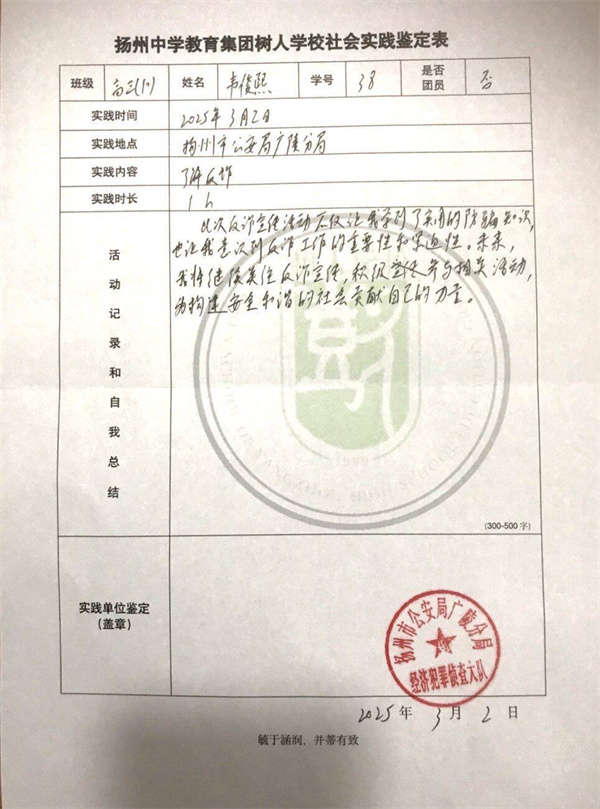 扬州中学教育集团树人学校社会实践鉴定表
班级 高二(10) 姓名 韦俊熙 学号 38 是否团员 否
实践时间 2025年3月2日
实践地点 扬州市公安局广陵分局
实践内容 了解反诈
实践时长 1h
活动记录和自我总结
此次反诈宣传活动不仅让我学到了实用的防骗知识,
也让我意识到反诈工作的重要性和紧迫性。未来,
我将继续关注反诈宣传,积极参与相关活动,
为构建安全和谐的社会贡献自己的力量。
(300-500字)
实践单位鉴定
(盖章)
扬州市公安局广陵分局
经济犯罪侦查大队
2025年3月2日
毓于涵润,并蒂有致